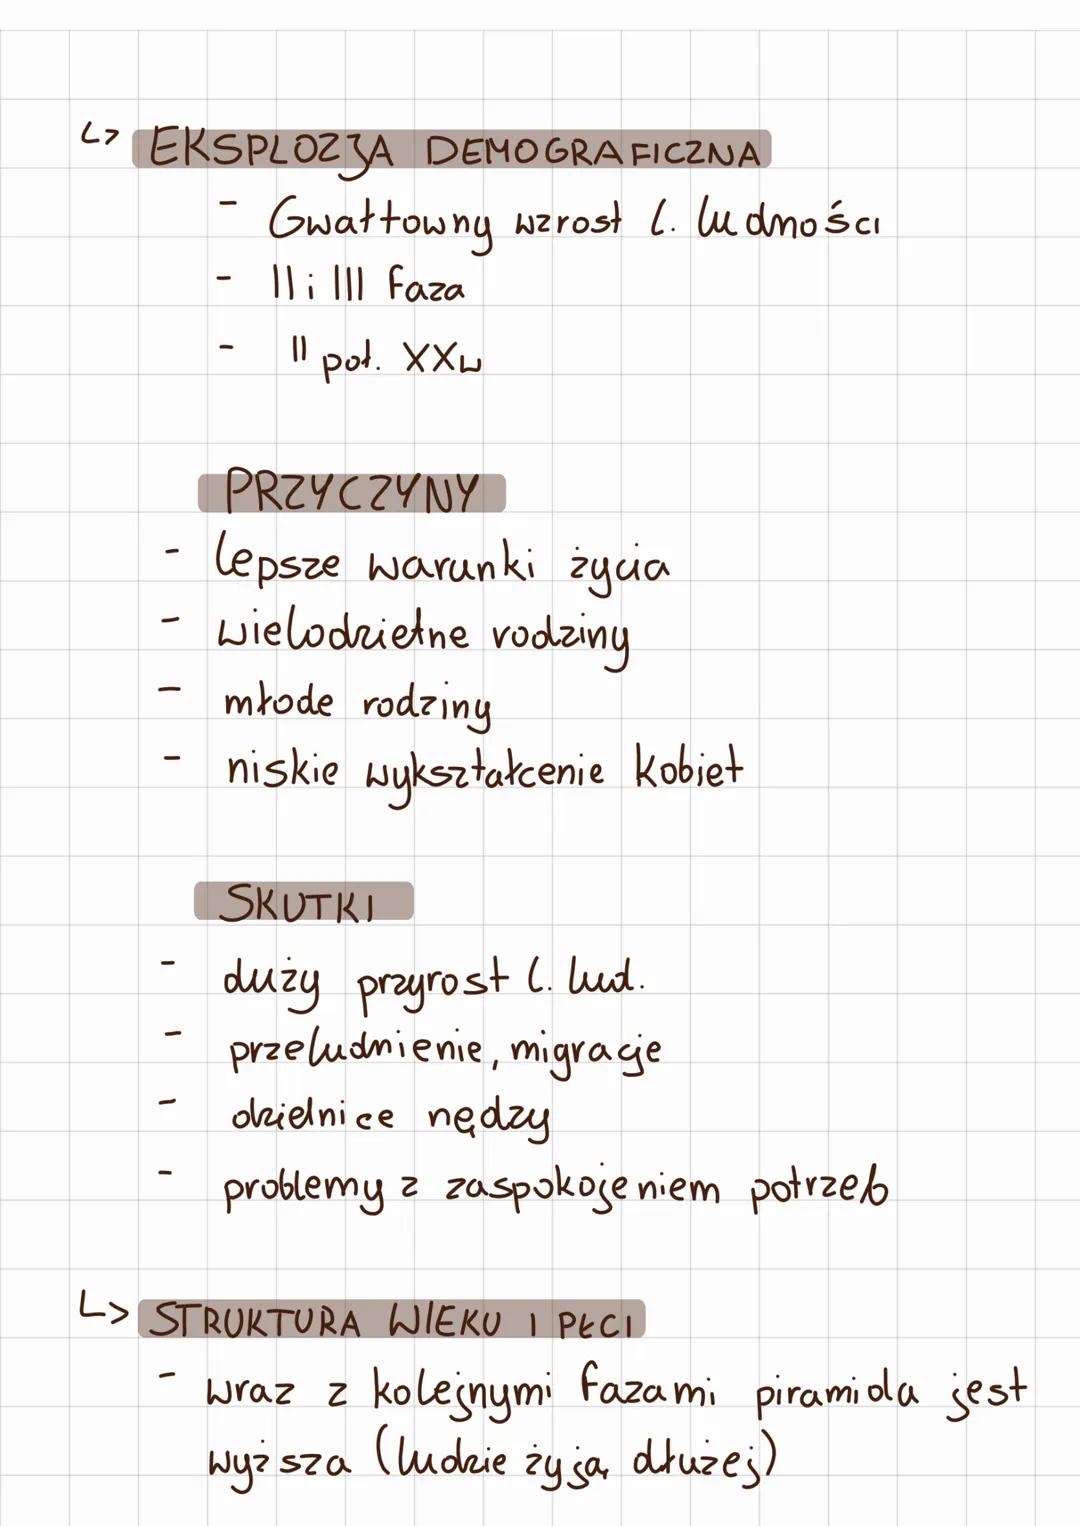 ↳ EKSPLOZJA DEMOGRAFICZNA
- Gwałtowny wzrost l. ludności
- II i III faza
- II poł. XXw
PRZYCZYNY
- lepsze warunki życia
- wielodzietne rodziny
- młode rodziny
- niskie wykształcenie kobiet
SKUTKI
- duży przyrost l. lud.
- przeludnienie, migracje
- dzielnice nędzy
- problemy z zaspokojeniem potrzeb
↳ STRUKTURA WIEKU I PŁCI
- wraz z kolejnymi fazami piramida jest
wyższa (ludzie żyją dłużej)